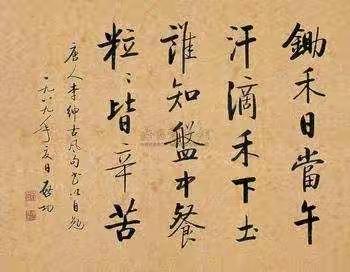 鋤禾日當午
汗滴禾下土
誰知盤中餐
粒〻皆辛苦
唐人李紳古風句書以自勉
一九八九年夏日 啟功